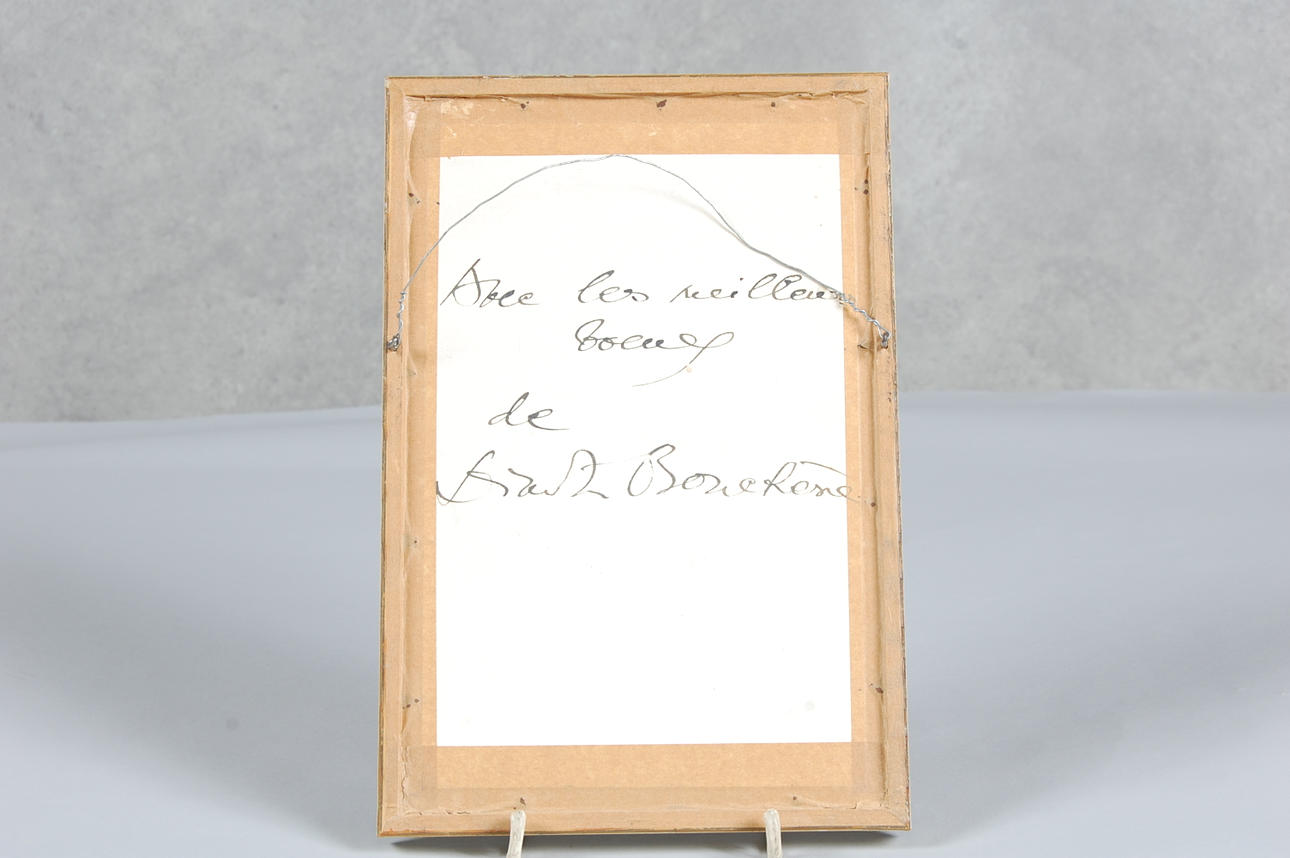 Avec les meilleurs
voeux
de
Bouchène